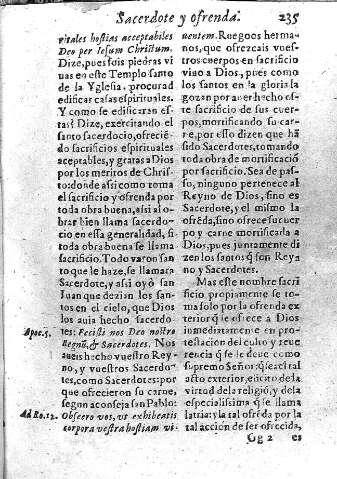 Sacerdote y ofrenda. 235
ritales hostias acceptabiles
Deo per Iesum Christum.
Dize, pues sois piedras vi
uas en este Templo santo
de la Yglesia, procurad
edificar casas espirituales.
Y como se edificaran es-
tas? Dize, exercitando el
santo sacerdocio, ofrecié-
do sacrificios espirituales
aceptables, y gratos a Dios
por los meritos de Chris-
to: donde assi como toma
el sacrificio y ofrenda por
toda obra buena, assi al o-
brar bien llama sacerdo-
cio en esta generalidad, si
toda obra buena se llama
sacrificio. Todo varon san
to que le haze, se llamara
Sacerdote, y assi oyò san
Iuan que dezian los san-
tos en el cielo, que Dios
los auia hecho sacerdo-
Apoc. 5. tes: Fecisti nos Deo nostro
Regnũ, & Sacerdotes. Nos
aueis hecho vuestro Rey-
no, y vuestros Sacerdo-
tes, como Sacerdotes: por
que ofrecieron su carne,
segun aconseja san Pablo:
Ad Ro. 12. Obsecro vos, vt exhibeatis
corpora vestra hostiam vi-
uentem. Ruegoos herma-
nos, que ofrezcais vues-
tros cuerpos en sacrificio
viuo a Dios, pues como
los santos en la gloria la
gozan por auer hecho es-
te sacrificio de sus cuer-
pos, mortificando su car-
ne, por esso dizen que hã
sido Sacerdotes, tomando
toda obra de mortificació
por sacrificio. Sea de pas-
so, ninguno pertenece al
Reyno de Dios, sino es
Sacerdote, y el mismo la
ofrẽda, sino ofrece su cuer
po y carne mortificada a
Dios, pues juntamente di
zen los santos q̃ son Rey
no y Sacerdotes.
Mas este nombre sacri
ficio propiamente se to-
ma solo por la ofrenda ex
terior q̃ se ofrece a Dios
inmediatamente en pro-
testacion del culto y reue
rencia q̃ se le deue como
supremo Señor: q̃ es acto
exterior, elicito de la
virtud de la religió, y de la
especialissima q̃ se llama
latria: y la tal ofrẽda por la
tal accion de ser ofrecida,
Gg 2 es